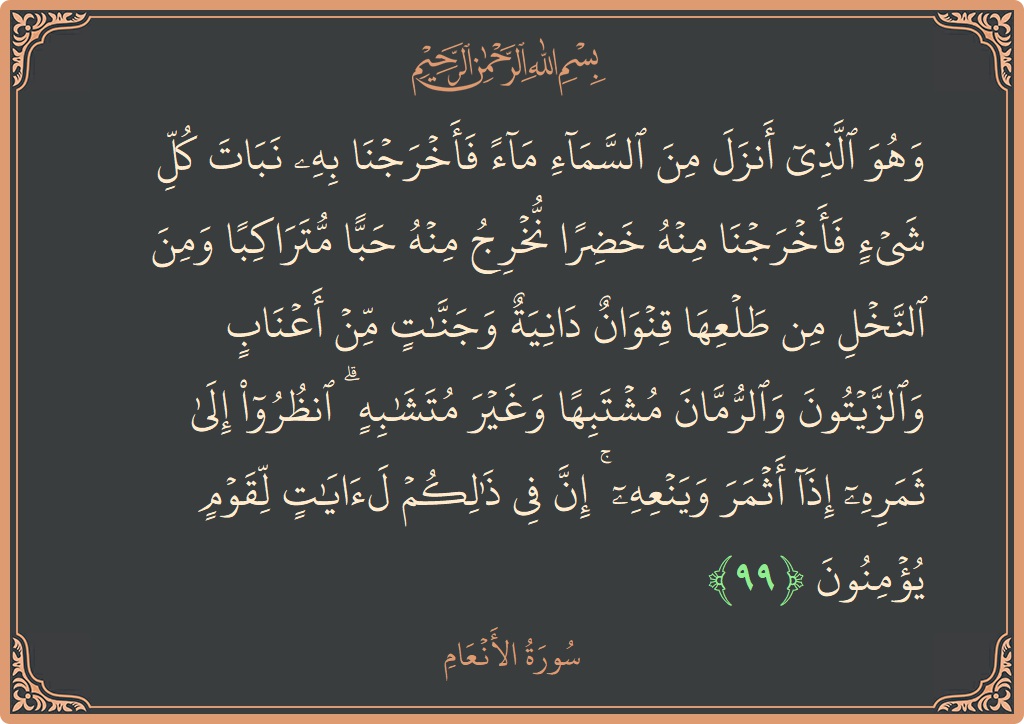 بِسْمِ اللَّهِ الرَّحْمَٰنِ الرَّحِيمِ
وَهُوَ ٱلَّذِىٓ أَنزَلَ مِنَ ٱلسَّمَآءِ مَآءً فَأَخْرَجْنَا بِهِۦ نَبَاتَ كُلِّ
شَىْءٍ فَأَخْرَجْنَا مِنْهُ خَضِرًا نُّخْرِجُ مِنْهُ حَبًّا مُّتَرَاكِبًا وَمِنَ
ٱلنَّخْلِ مِن طَلْعِهَا قِنْوَانٌ دَانِيَةٌ وَجَنَّٰتٍ مِّنْ أَعْنَابٍ
وَٱلزَّيْتُونَ وَٱلرُّمَّانَ مُشْتَبِهًا وَغَيْرَ مُتَشَٰبِهٍ ۗ ٱنظُرُوٓا۟ إِلَىٰ
ثَمَرِهِۦٓ إِذَآ أَثْمَرَ وَيَنْعِهِۦٓ ۚ إِنَّ فِى ذَٰلِكُمْ لَءَايَٰتٍ لِّقَوْمٍ
يُؤْمِنُونَ ﴿٩٩﴾
سُورَةُ الأَنْعَامِ